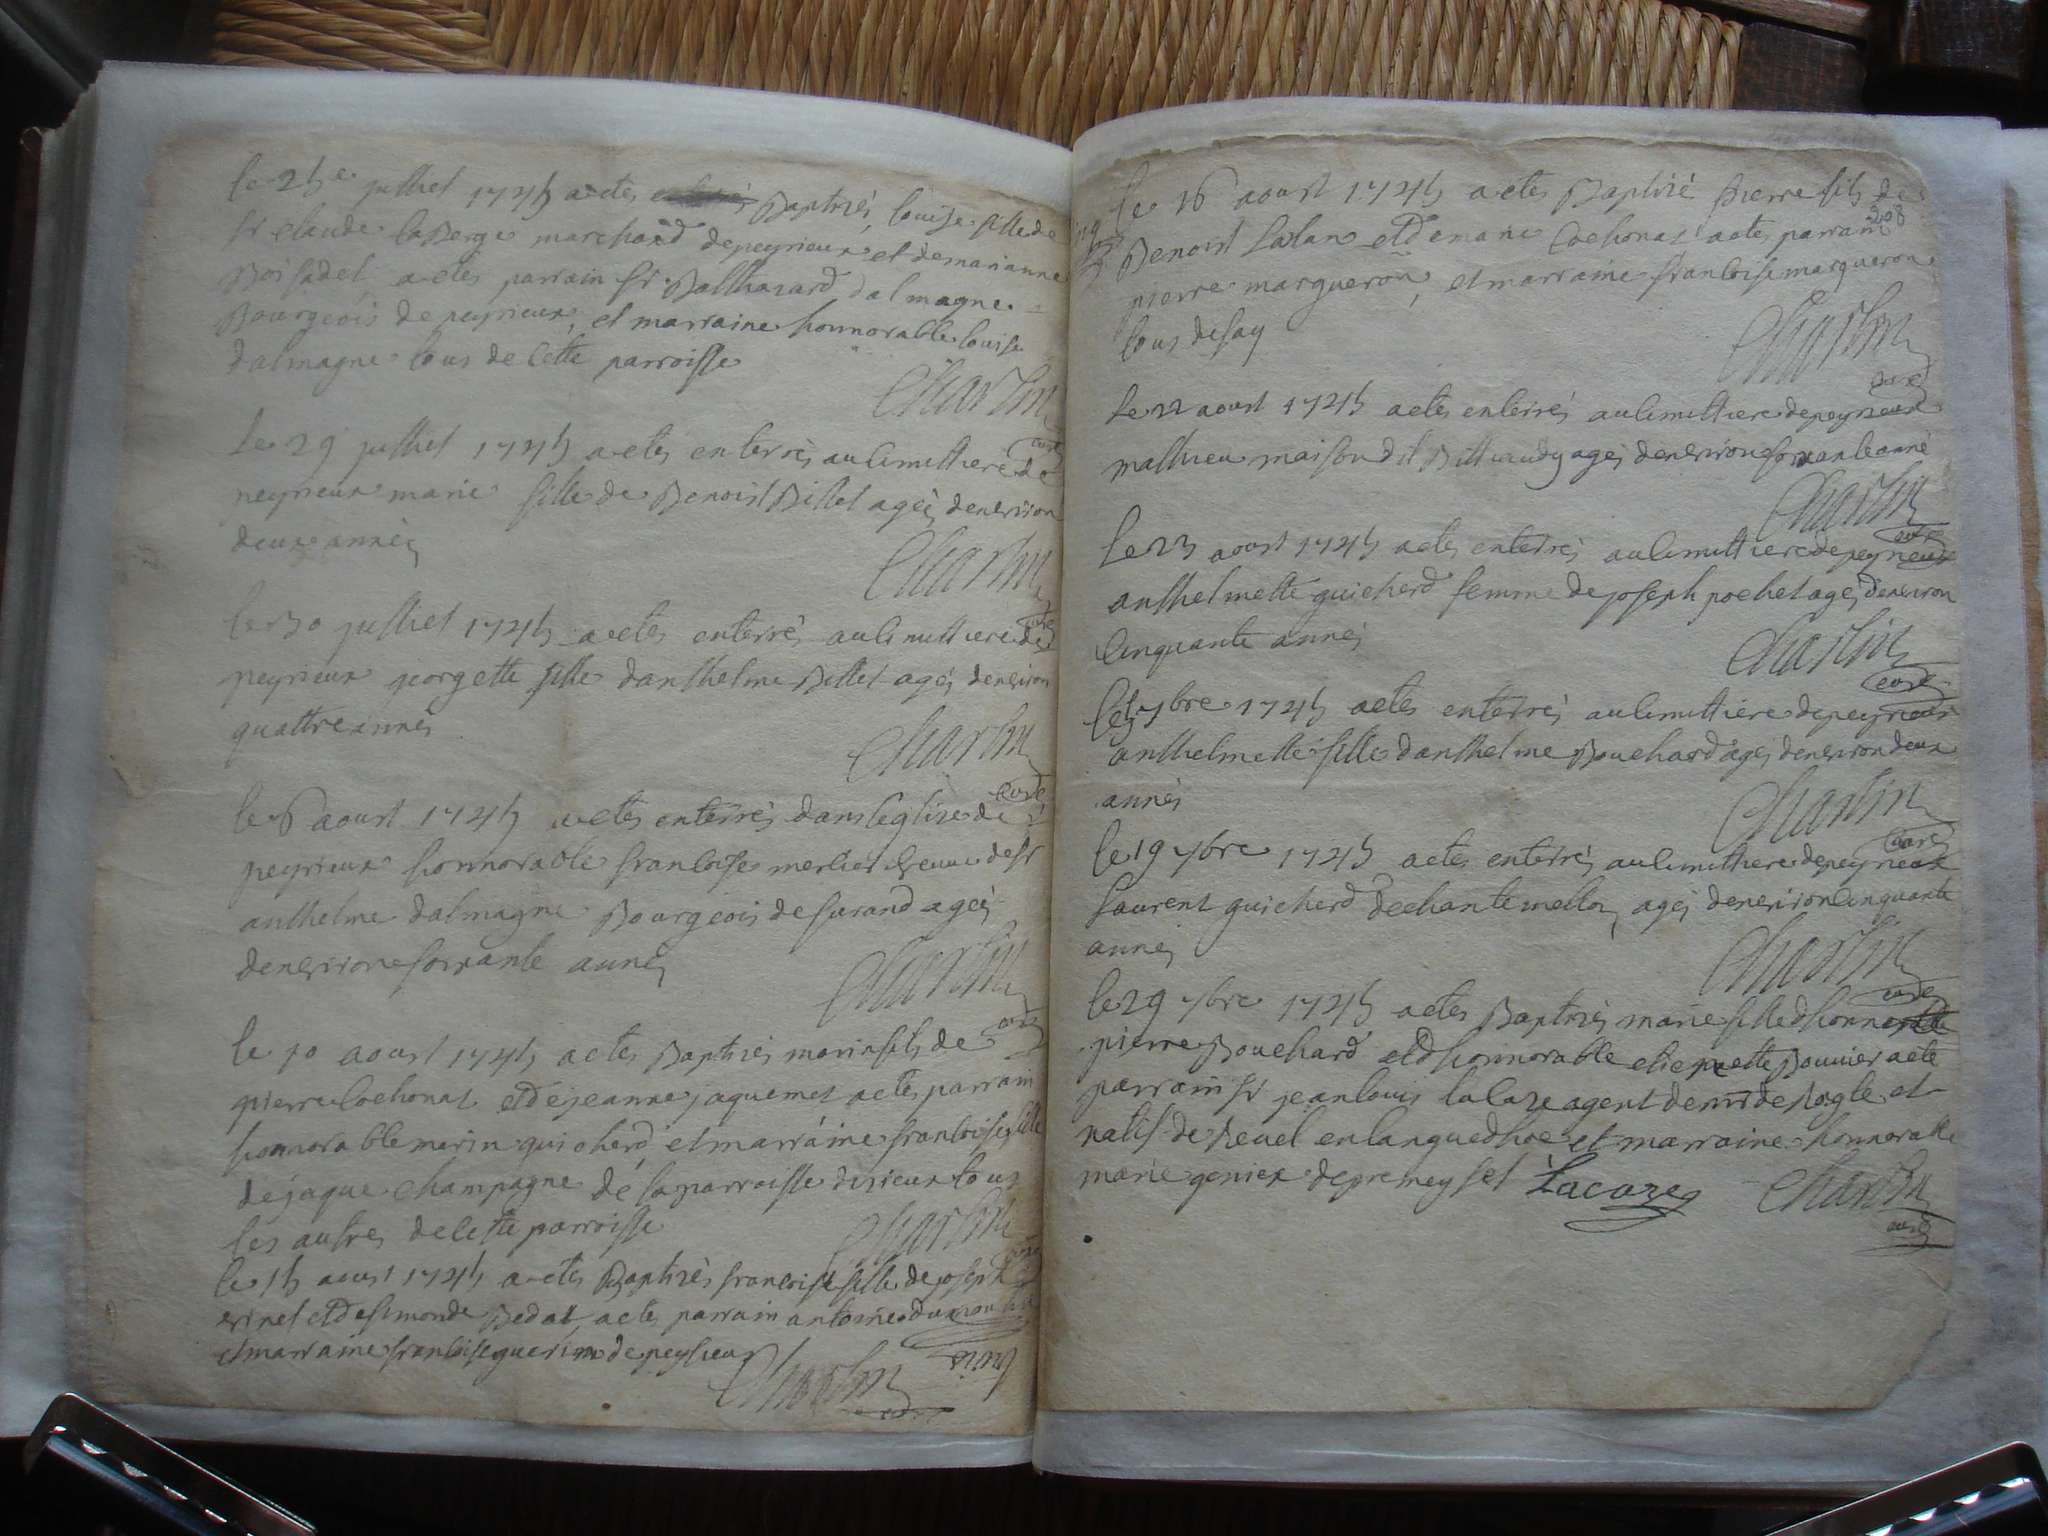 le 25e juillet 1745 a etes Baptizés, louise fille de
sr claude laBerge marchand de peyrieux et de marianne
Boisadel, a etes parrain sr Balthazard dalmagne
Bourgeois de peyrieux, et marraine honnorable louise
dalmagne tous de cette parroisse
Charlin
curé
le 29 juillet 1745 a etes enterrés au cimittiere de
peyrieux marie fille de Benoist Billet ageé, denviron
deux annés
Charlin
curé
le 30 juillet 1745 a etes enterrés au cimittiere de
peyrieux georgette fille danthelme Billet agés denviron
quattre annés
Charlin
curé
le 6 aoust 1745 a etes enterrés dans leglize de
peyrieux honnorable francoise merlier veuve de sr
anthelme dalmagne Bourgeois de surand ageés
denviron soixante annés
Charlin
curé
le 10 aoust 1745 a etes Baptizés marin fils de
pierre Cochonat et de jeanne jaquemet a etes parrain
honnorable marin guicherd, et marraine francoise fille
de jaque champagne de la parroisse dizieux tous
les autres de cette parroisse
Charlin
curé
le 15 aoust 1745 a etes Baptizés francoise fille de joseph
et de simonde Bedat, a etes parrain antoine
et marraine francoise guerin de peyzieux
Charlin
curé
208
le 16 aoust 1745 a etes Baptizé pierre fils de
Benoist et de marie Cochonat a etes parrain
pierre margueron, et marraine francoise margueron
tous de
Charlin
curé
le 22 aoust 1745 a etes enterrés au cimittiere de peyrieux
mathieu maison dit agés denviron soixante annés
Charlin
curé
le 23 aoust 1745 a etes enterrés au cimittiere de peyrieux
anthelmette guicherd femme de joseph pochet agés denviron
cinquante annés
Charlin
curé
7bre 1745 a etes enterrés au cimittiere de peyrieux
anthelmette fille danthelme Bouchard agés denviron deux
annés
Charlin
curé
le 19 7bre 1745 a etes enterrés au cimittiere de peyrieux
laurent guicherd de chantemello, agés denviron cinquante
annés
Charlin
curé
le 29 7bre 1745 a etes Baptizés marie fille dhonnorable
pierre Bouchard et dhonnorable Bouvier a ete
parrain sr jean louis lacaze agent de mr de et
natif de Revel en languedhoc et marraine honnorable
marie genier de premeysel Lacaze Charlin
curé